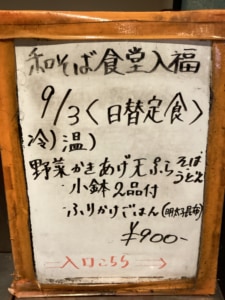 和そば食堂入福
9/3〈日替定食〉
冷)温)
野菜かきあげ天ぷらそば
うどん
小鉢2品付
ふりかけごはん(明太子昆布)
¥900-
入口こちら→